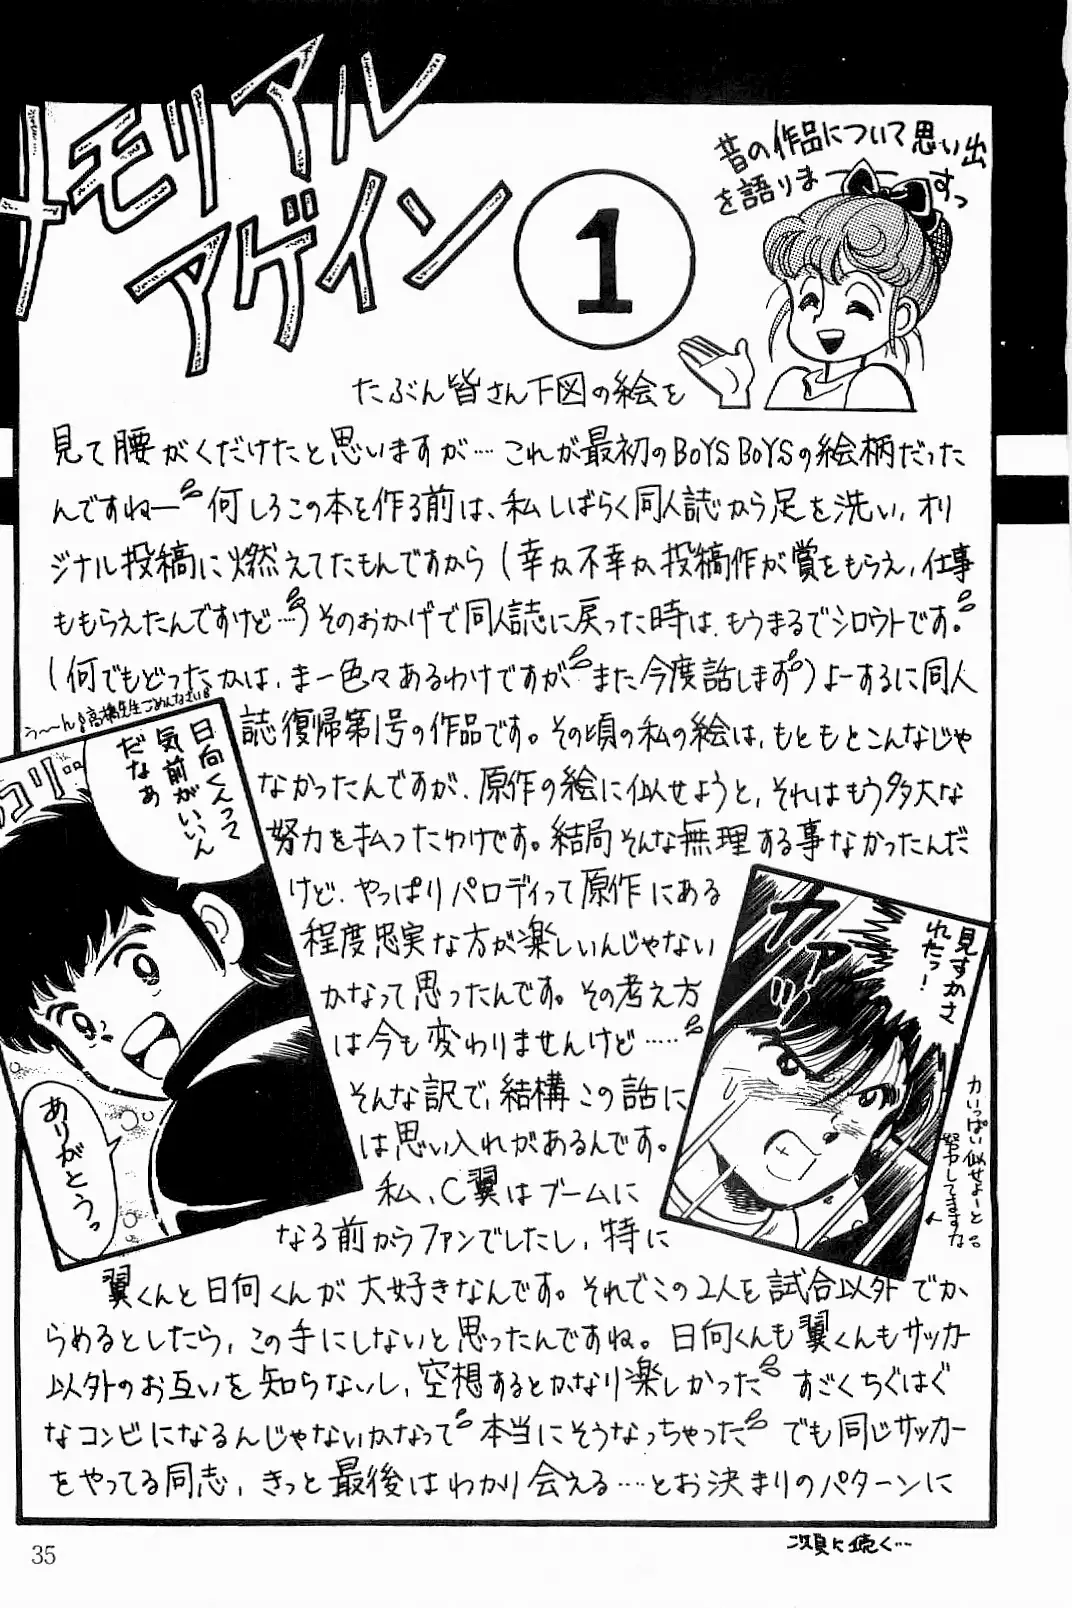 メモリアル
アゲイン
1
昔の作品について思い出
を語りまーーーすっ
たぶん皆さん下図の絵を
見て腰がくだけたと思いますが…これが最初のBOYS BOYSの絵柄だった
んですねー 何しろこの本を作る前は、私しばらく同人誌から足を洗い、オリ
ジナル投稿に燃えてたもんですから(幸か不幸か投稿作が賞をもらえ、仕事
ももらえたんですけど…)そのおかげで同人誌に戻った時は、もうまるでシロウトです。
(何でもどったかは、まー色々あるわけですが また今度話します)よーするに同人
誌復帰第1号の作品です。その頃の私の絵は、もともとこんなじゃ
なかったんですが、原作の絵に似せようと、それはもう多大な
努力を払ったわけです。結局そんな無理する事なかったんだ
けど、やっぱりパロディって原作にある
程度忠実な方が楽しいんじゃない
かなって思ったんです。その考え方
は今も変わりませんけど……
そんな訳で、結構この話に
は思い入れがあるんです。
私、C翼はブームに
なる前からファンでしたし、特に
翼くんと日向くんが大好きなんです。それでこの2人を試合以外でか
らめるとしたら、この手にしないと思ったんですね。日向くんも翼くんもサッカー
以外のお互いを知らないし、空想するとかなり楽しかった すごくちぐはぐ
なコンビになるんじゃないかなって 本当にそうなっちゃった でも同じサッカー
をやってる同志、きっと最後はわかり会える…とお決まりのパターンに
う〜〜ん 高橋先生ごめんなさい
日向くんって
気前がいいん
だなあ
ありがとうっ
カアーッ
見すかさ
れたっ!
力いっぱい似せよーと
努力してますな
次頁に続く…
35